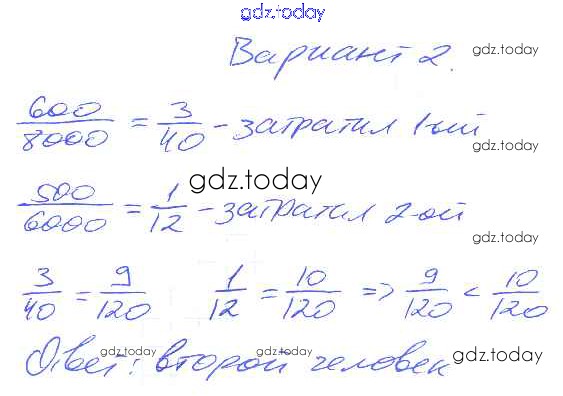 gdz.today
Вариант 2. gdz.today
600/8000 = 3/40 - затратил 1-ый gdz.today
gdz.today
500/6000 = 1/12 - затратил 2-ой
gdz.today
3/40 = 9/120 1/12 = 10/120 => 9/120 < 10/120
Ответ: второй человек
gdz.today gdz.today gdz.today